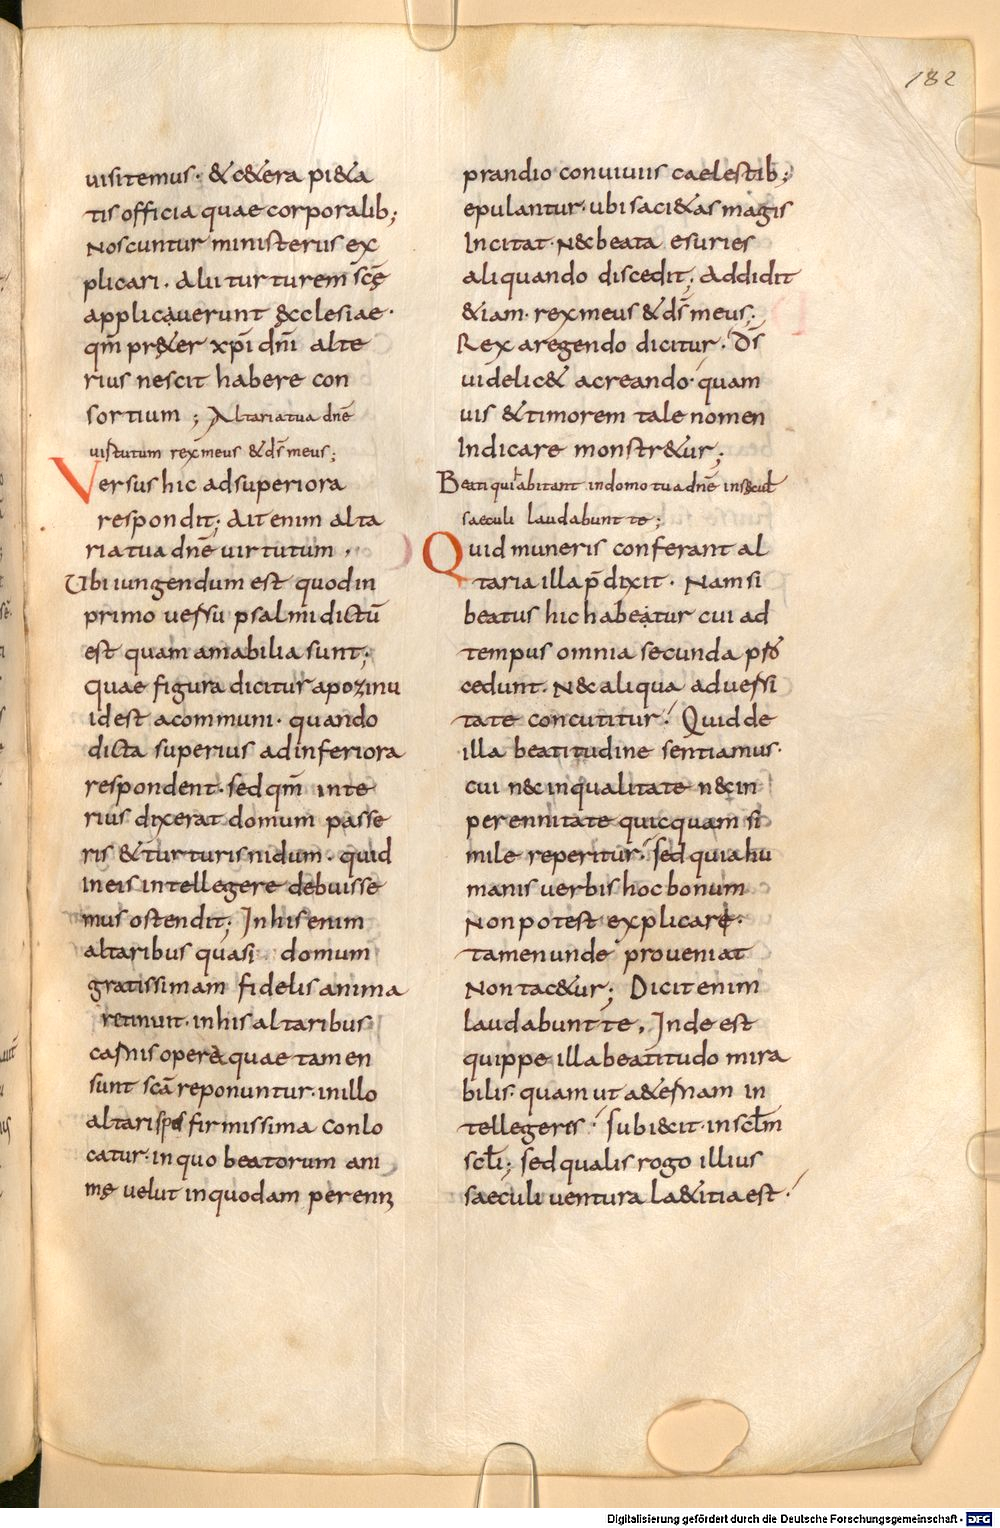 182
uisitemus· & c&era pi&a
tis officia quae corporalib;
Noscuntur ministeriis ex
plicari. Alii turturem scē
applicauerunt ęcclesiae·
qm̄ pr&er xp̄i dn̄i alte
rius nescit habere con
sortium ; Altaria tua dnē
uirtutum rex meus & ds̄ meus;
Versus hic ad superiora
respondit; Ait enim alta
ria tua dnē uirtutum ·
Ubi iungendum est quod in
primo uersu psalmi dictū
est quam amabilia sunt;
quae figura dicitur apozinu
id est a communi· quando
dicta superius ad inferiora
respondent· sed qm̄ inte
rius dixerat domum passe
ris & turturis nidum· quid
in eis intellegere debuisse
mus ostendit; In his enim
altaribus quasi domum
gratissimam fidelis anima
retinuit· in his altaribus
carnis opera quae tamen
sunt scā reponuntur· in illo
altari spes firmissima conlo
catur· in quo beatorum ani
mę uelut in quodam perenni
prandio conuiuiis caelestib;
epulantur· ubi saci&as magis
Incitat· N&beata esuries
aliquando discedit; Addidit
&iam· rex meus & ds̄ meus;
Rex a regendo dicitur· Ds̄
uidelic& a creando· quam
uis & timorem tale nomen
Indicare monstr&ur;
Beati qui habitant in domo tua dnē in sęculū
saeculi laudabunt te;
Quid muneris conferant al
taria illa p̄dixit. Nam si
beatus hic habeatur cui ad
tempus omnia secunda pro
cedunt· N&c aliqua aduersi
tate concutitur· Quid de
illa beatitudine sentiamus·
cui n&c in qualitate n&c in
perennitate quicquam si
mile reperitur· sed quia hu
manis uerbis hoc bonum
Non potest explicare·
tamen unde proueniat
Non tac&ur; Dicit enim
laudabunt te, Inde est
quippe illa beatitudo mira
bilis· quam ut a&ernam in
tellegeris· subi&cit· in sclm̄
scl̄i; sed qualis rogo illius
saeculi uentura la&itia est·
Digitalisierung gefördert durch die Deutsche Forschungsgemeinschaft · DFG